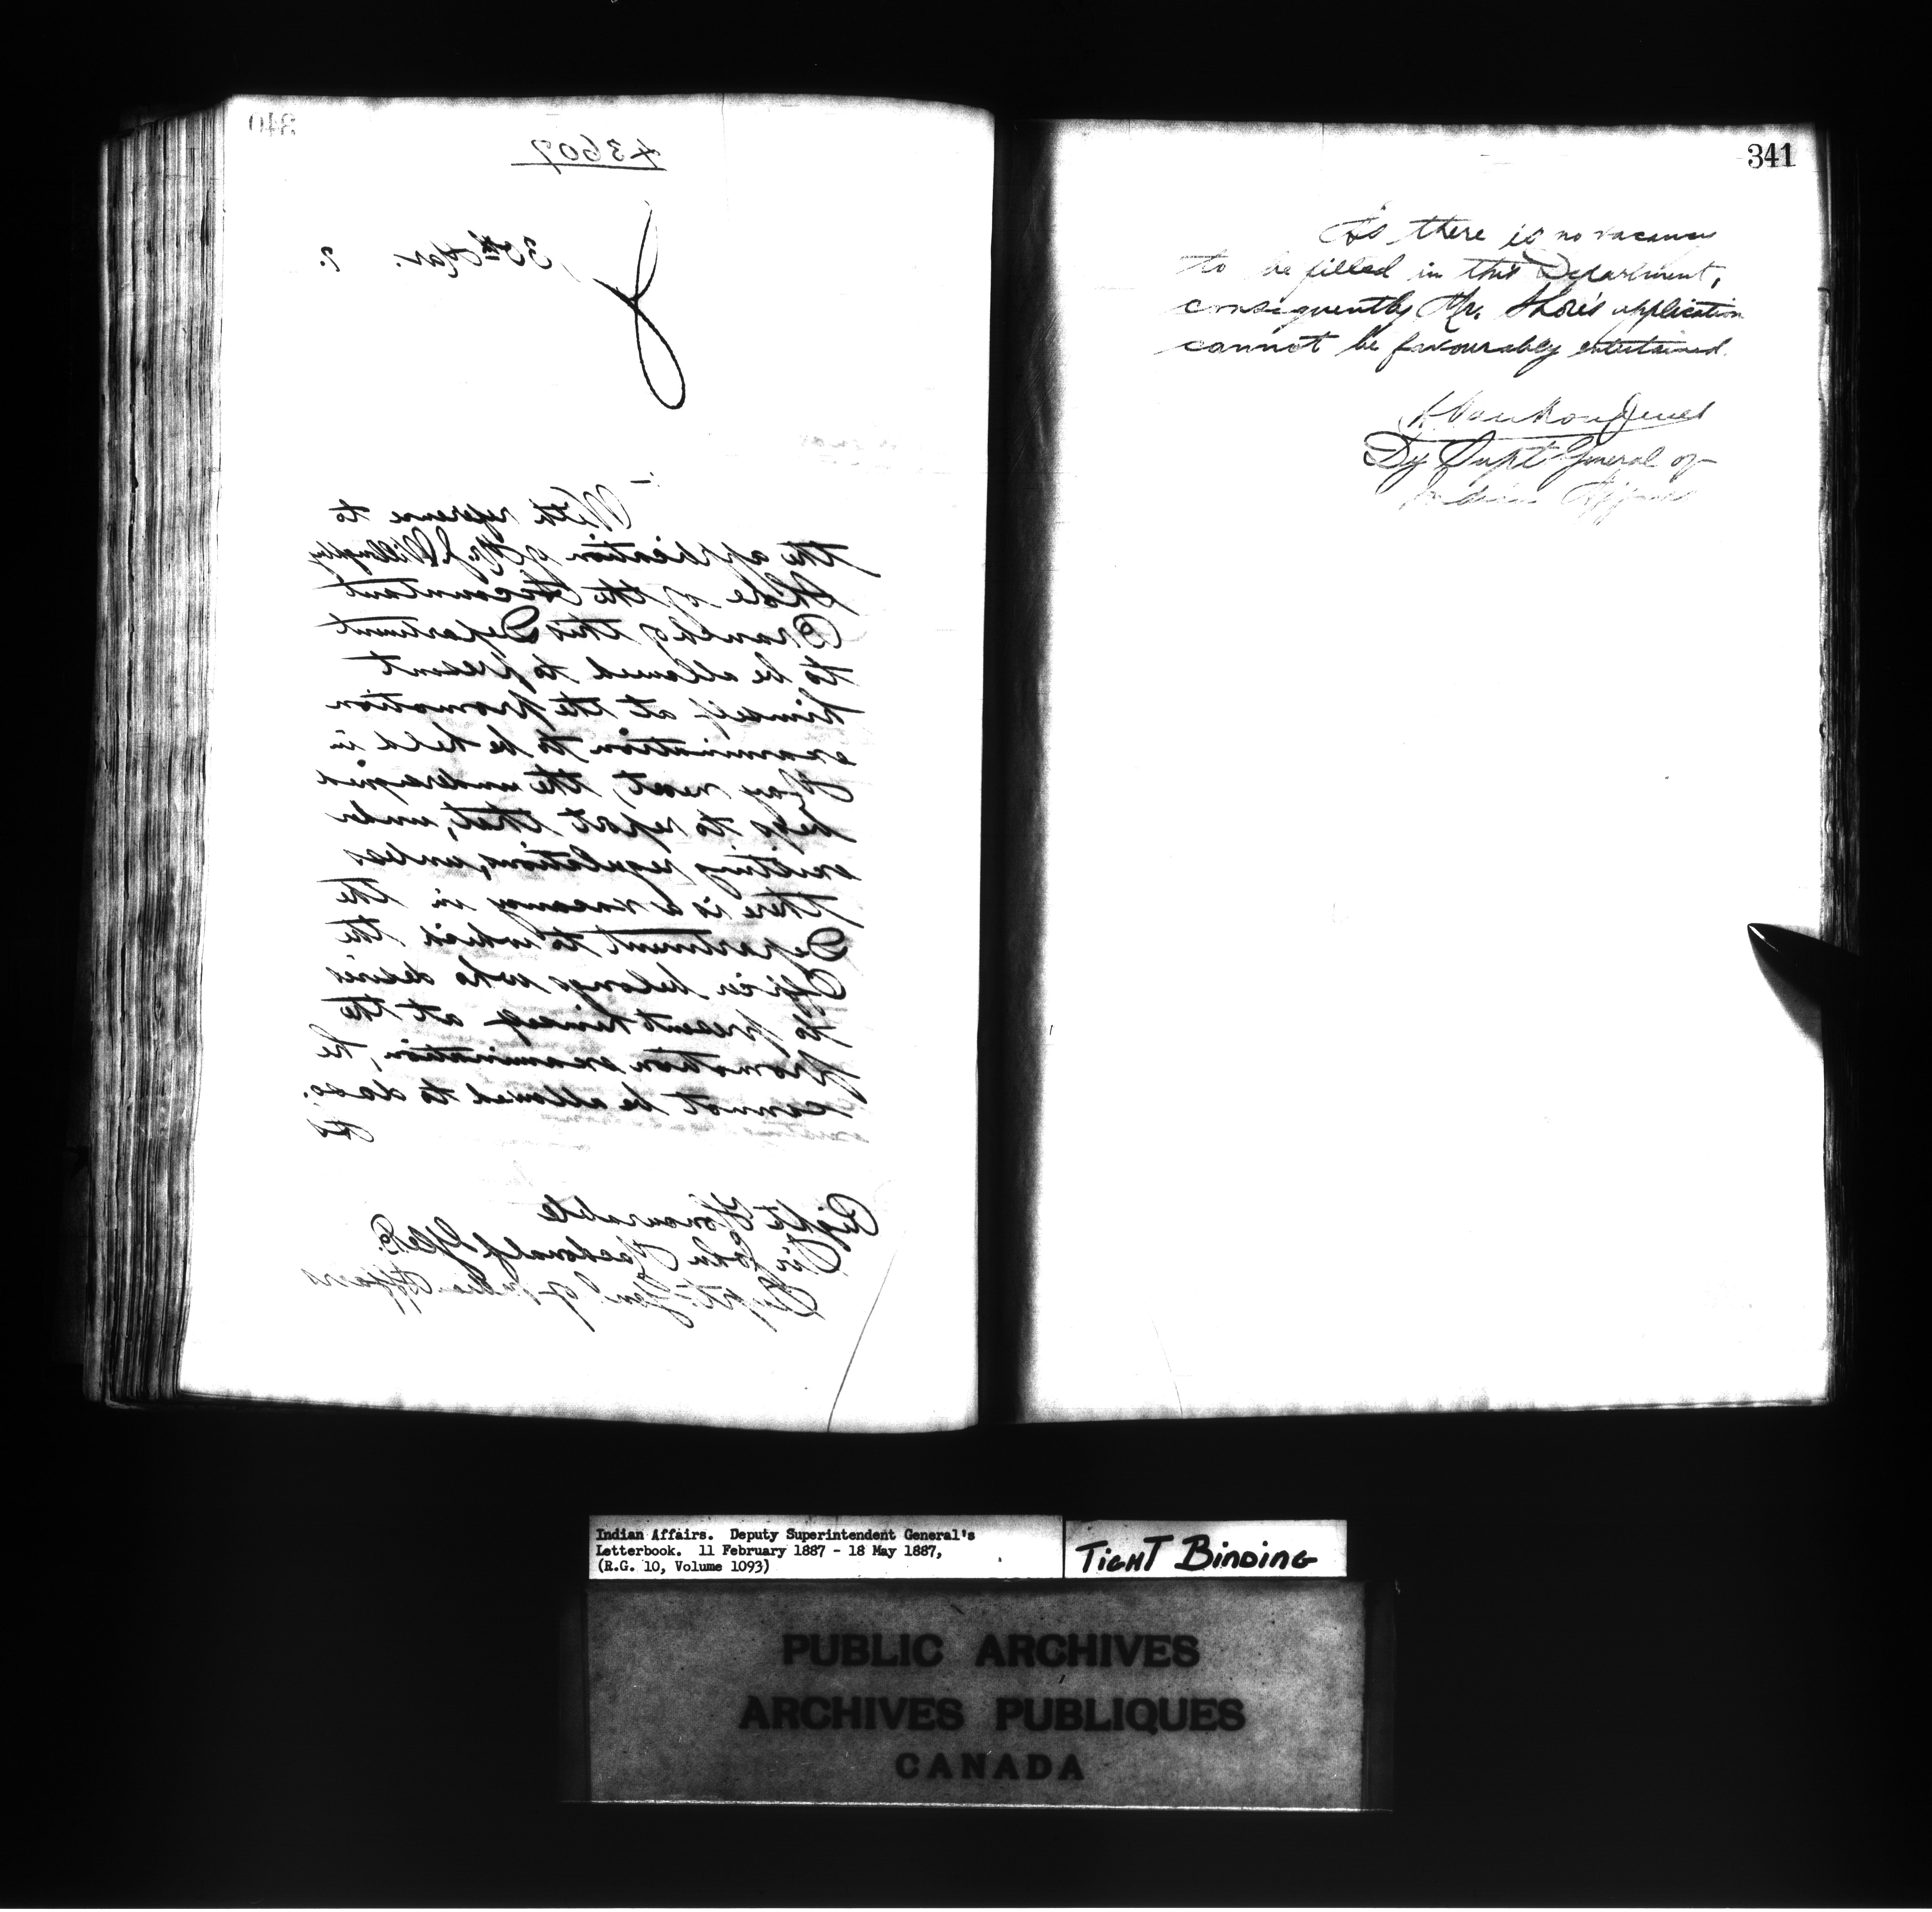 340
43607
30th Mar. 7.
With reference to
the application of Mr. J. Willoughby
Shore of the Accountant
Branch of this Department
to be allowed to present
himself at the promotion
examination to be held in
May next, the undersigned
begs to report that, under
existing regulations, unless
there is a vacancy in the
Department to which the
Officer belongs who desires
to present himself at the
promotion examination, he
cannot be allowed to do so.
As
Right Honourable
Sir John Macdonald G.C.B.
Supt. Genl. of Indian Affairs
341
As there is no vacancy
to be filled in this Department,
consequently Mr. Shore's application
cannot be favourably entertained.
L. Vankoughnet
Dy Supt General of
Indian Affairs
Indian Affairs. Deputy Superintendent General's
Letterbook. 11 February 1887 - 18 May 1887,
(R.G. 10, Volume 1093)
TIGHT BINDING
PUBLIC ARCHIVES
ARCHIVES PUBLIQUES
CANADA